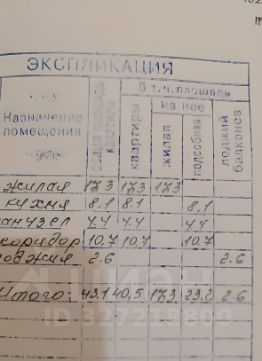 ЭКСПЛИКАЦИЯ
В т.ч. площадь
Назначение помещения
общая площадь квартиры
квартиры
из нее
жилая
подсобная
лоджий балконов
жилая 17,3 17,3 17,3
кухня 8,1 8,1 8,1
санузел 4.4 4.4 4.4
коридор 10,7 10,7 10.7
лоджия 2.6 2.6
Итого: 43,1 40,5 17,3 23,2 2.6
ЦИАН
ID 327218800